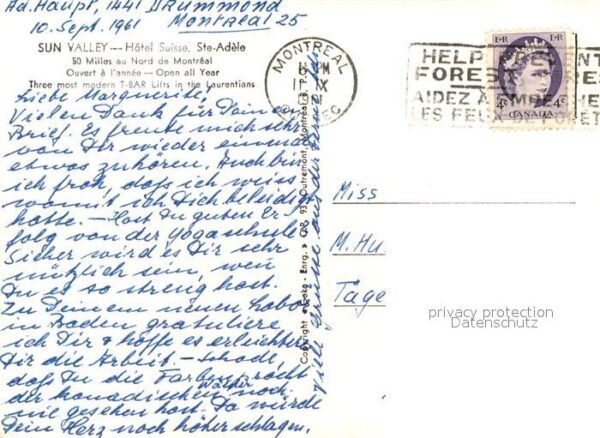 Ad. Haupt, 1441 Drummond
10. Sept. 1961 Montreal 25
SUN VALLEY — Hôtel Suisse, Ste-Adèle
50 Milles au Nord de Montréal
Ouvert à l'année — Open all Year
Three most modern T-BAR Lifts in the Laurentians
Liebe Marguerite,
Vielen Dank für Deinen
Brief. Es freute mich sehr
von Dir wieder einmal
etwas zuhören. Auch bin
ich froh, dass ich weiss
womit ich Dich beleidigt
hatte. — Hast Du guten Er-
folg von der Yogaschule
Sicher wird es Dir sehr
nützlich sein, wen
Du es so streng hast.
Zu Deinem neuen Labor
in Baden gratuliere
ich Dir & hoffe es erleichtert
Dir die Arbeit — schade,
dass Du die Farbenpracht
der kanadischen Wälder noch
nie gesehen hast. Da würde
Dein Herz noch höher schlagen.
Viele Grüsse aus der Ferne
Outremont, Montreal 8, P.Q.
MONTREAL
PM
11 IX
QUEBEC
HELP PREVENT
FOREST FIRES
AIDEZ À EMPÊCHER
LES FEUX DE FORÊT
E II R E II R
4c 4c
CANADA
Miss
M. Hu
Täge
privacy protection
Datenschutz